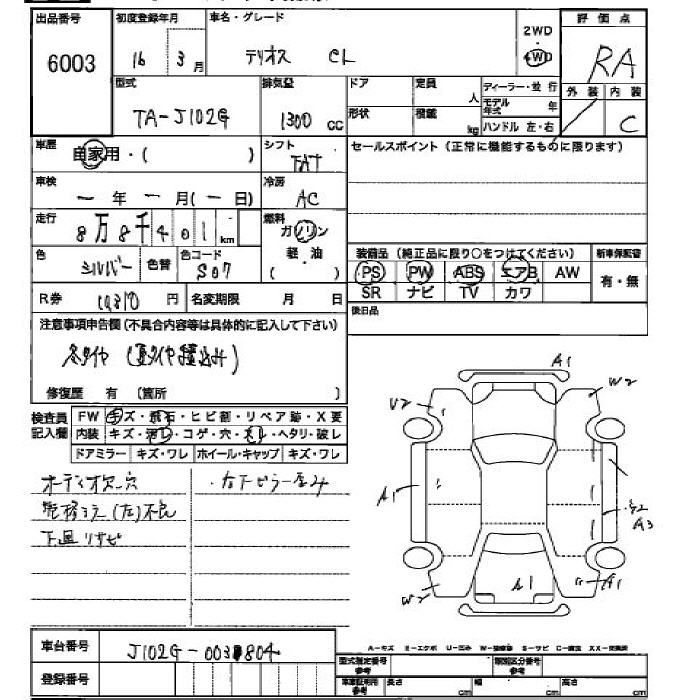 出品番号 初度登録年月 車名・グレード 2WD 評価点
6003 16年 3月 テリオス CL 4WD RA
型式 排気量 ドア 定員 人 ディーラー・並行 外装 内装
TA-J102G 1300 cc 形状 積載 kg モデル年式 年 C
ハンドル 左・右
車歴 自家用・( ) シフト FAT セールスポイント(正常に機能するものに限ります)
車検 ー年ー月(ー日) 冷房 AC
走行 8万8千401 km 燃料 ガソリン
軽・油
( )
色 シルバー 色替 色コード S07 装備品(純正品に限り○をつけてください) 新車保証書
PS PW ABS エアB AW 有・無
SR ナビ TV カワ
R券 10310円 名変期限 月 日 後日品
注意事項申告欄(不具合内容等は具体的に記入して下さい)
冬タイヤ(夏タイヤ積込み)
修復歴 有 (箇所 )
検査員記入欄 FW キズ・飛石・ヒビ割・リペア跡・X要
内装 キズ・汚レ・コゲ・穴・スレ・ヘタリ・破レ
ドアミラー キズ・ワレ ホイール・キャップ キズ・ワレ
オーディオ欠、穴 ・右下ピラー歪み
下回りサビ
A1
U2 W2
A1 A3
W2 A1 A1
A-キズ E-エクボ U-凹み W-補修跡 S-サビ C-腐食 XX-交換済
車台番号 J102G-003 804
登録番号
型式指定番号 参考 類別区分番号 参考
車庫証明用 参考 長さ cm 幅 cm 高さ cm